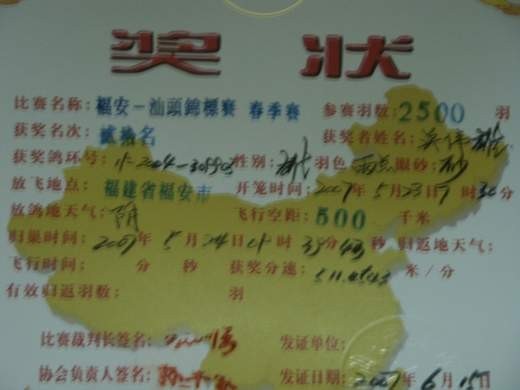 奖 状
比赛名称: 福安－汕頭錦標賽 春季赛 参赛羽数: 2500 羽
获奖名次: 贰拾名 获奖者姓名: 吴伟雄
获奖鸽环号: 性别: 雄 羽色 雨点 眼砂: 砂
放飞地点: 福建省福安市 开笼时间: 2007年 5月23日 7时30分
放鸽地天气: 阴 飞行空距: 500 千米
归巢时间: 2007年 5月24日 时 分 秒 归返地天气:
飞行时间: 分 秒 获奖分速: 米/分
有效归返羽数: 羽
比赛裁判长签名: 发证单位:
协会负责人签名: 发证日期: 2007年 6月15日